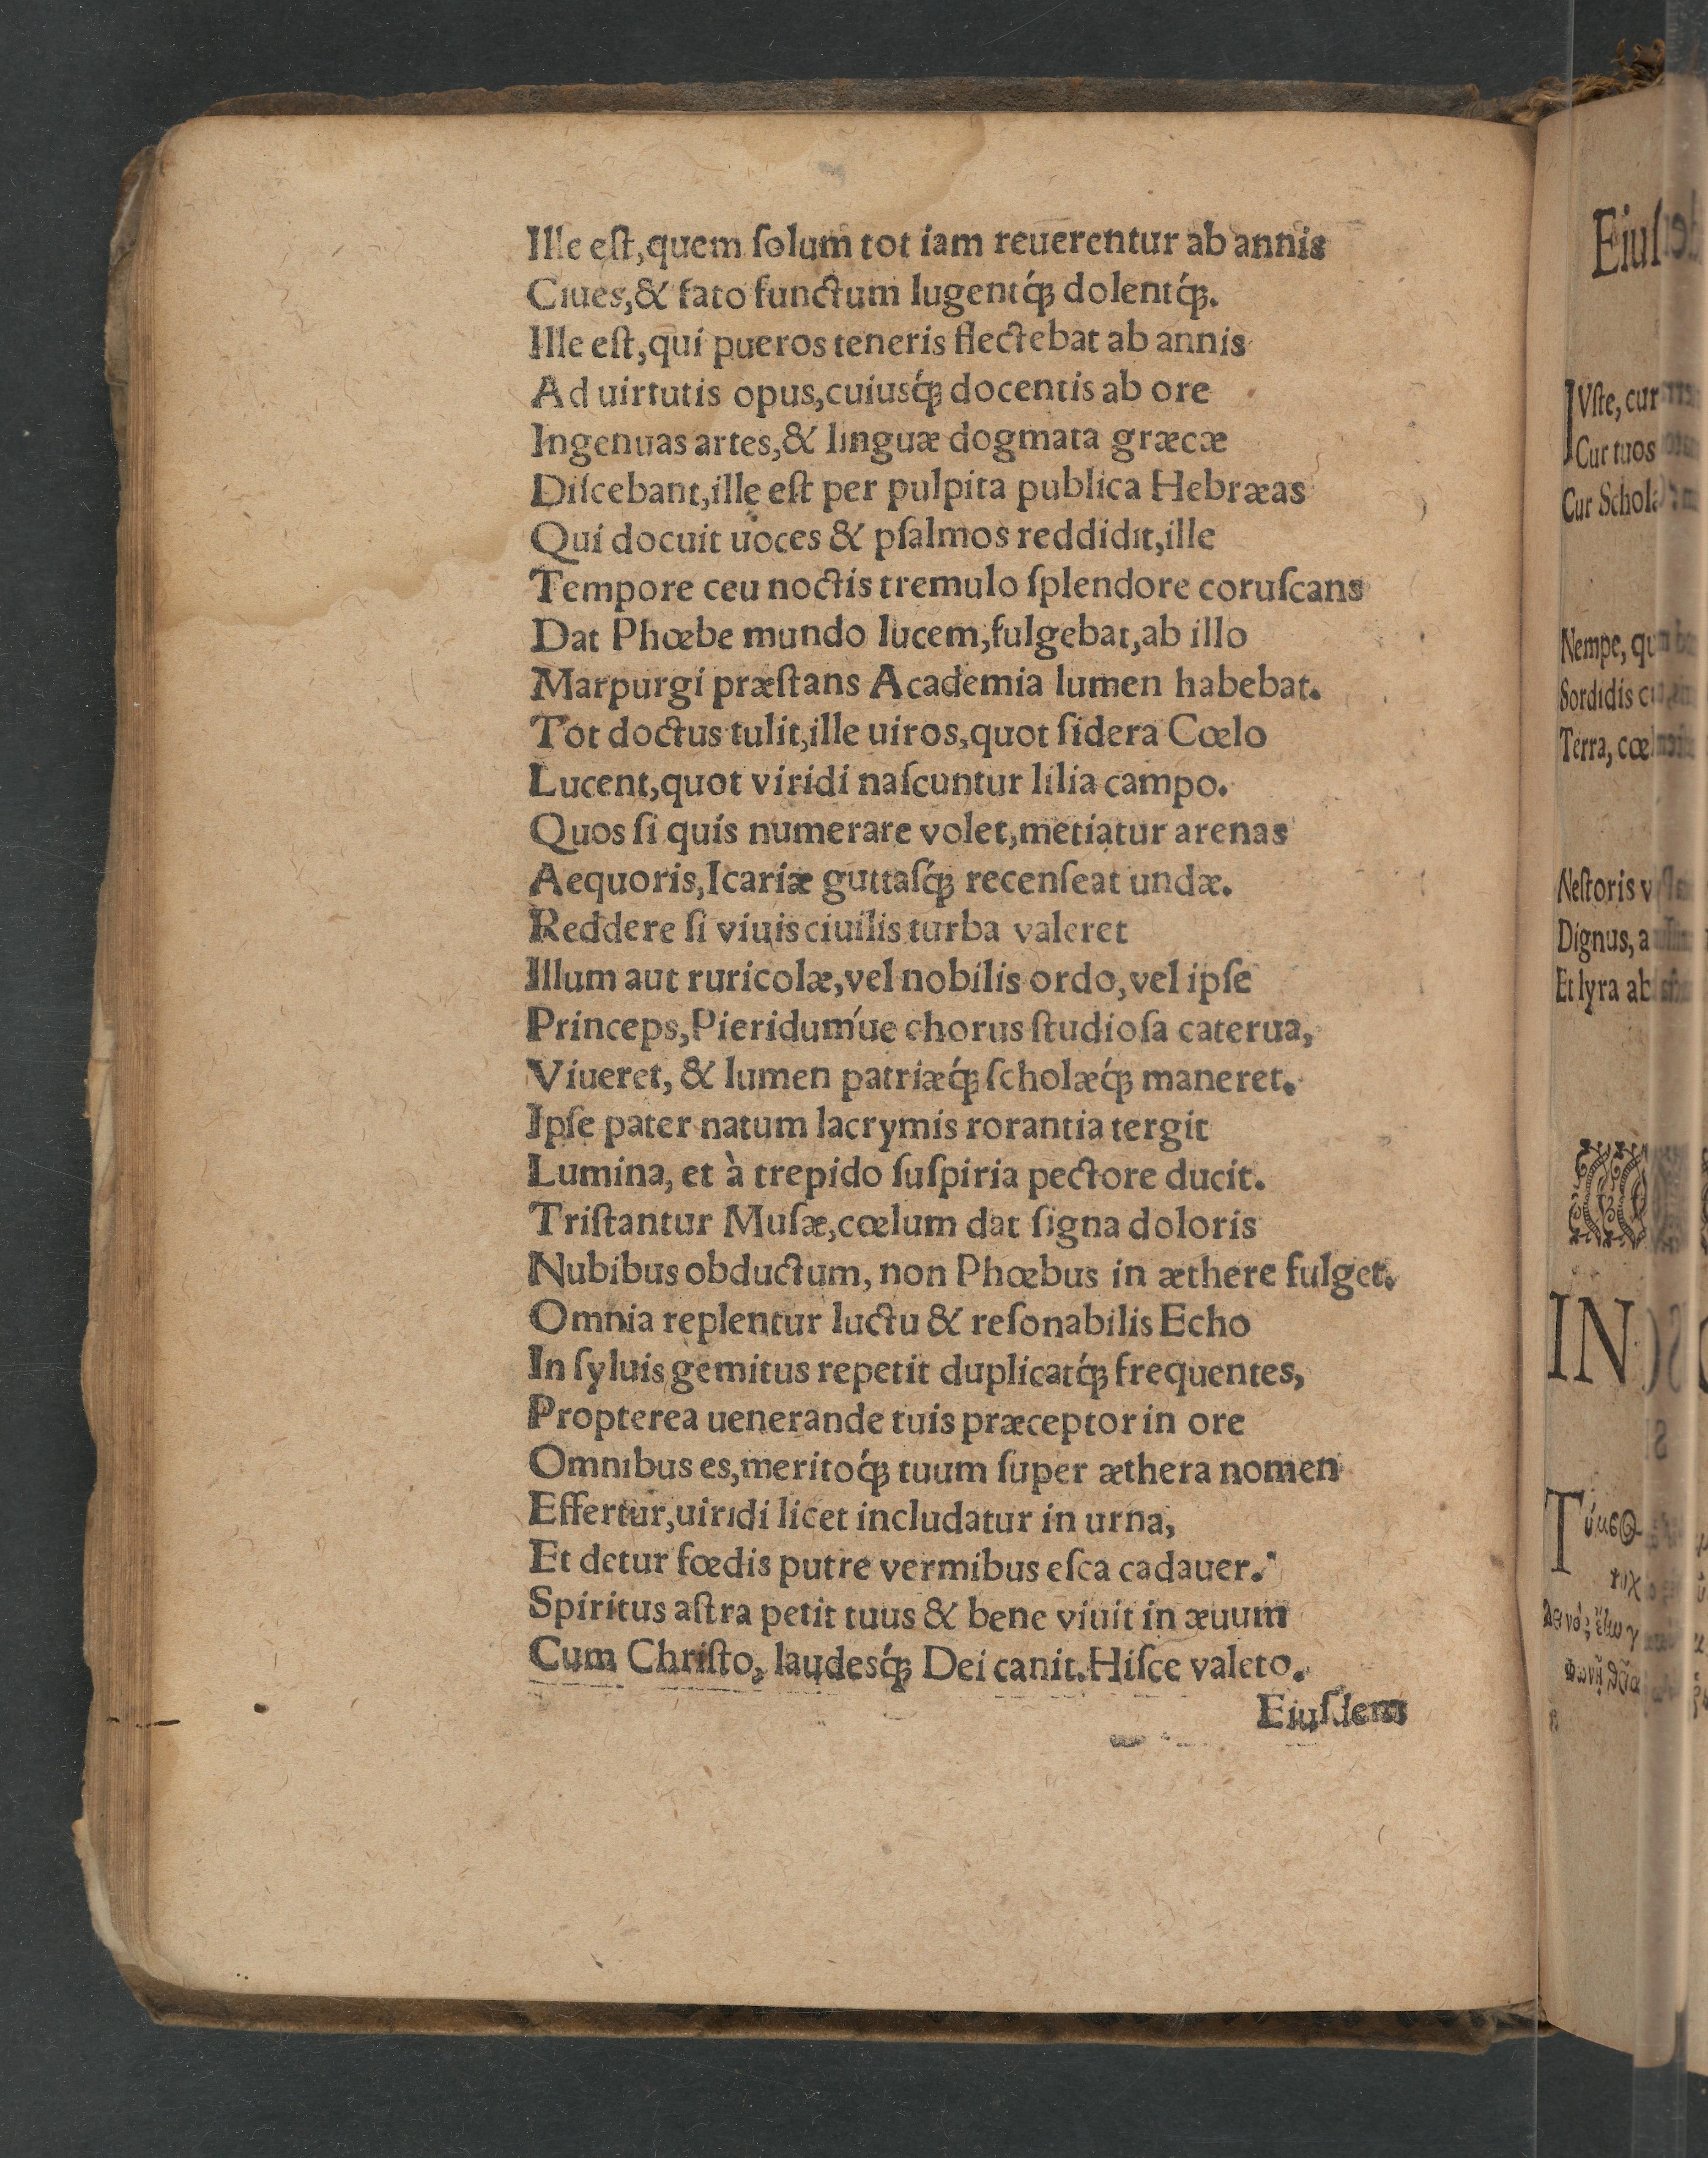 Ille eſt,quem ſolum tot iam reuerentur ab annis
Ciues,& fato functum lugentq́ꝫ dolentq́ꝫ.
Ille eſt,qui pueros teneris flectebat ab annis
Ad uirtutis opus,cuiusq́ꝫ docentis ab ore
Ingenuas artes,& linguæ dogmata græcæ
Diſcebant,ille eſt per pulpita publica Hebræas
Qui docuit uoces & pſalmos reddidit,ille
Tempore ceu noctis tremulo ſplendore coruſcans
Dat Phœbe mundo lucem,fulgebat,ab illo
Marpurgi præſtans Academia lumen habebat.
Tot doctus tulit,ille uiros,quot ſidera Cœlo
Lucent,quot viridi naſcuntur lilia campo.
Quos ſi quis numerare volet,metiatur arenas
Aequoris,Icariæ guttaſq́ꝫ recenſeat undæ.
Reddere ſi viuis ciuilis turba valeret
Illum aut ruricolæ,vel nobilis ordo,vel ipſe
Princeps,Pieridum'ue chorus ſtudioſa caterua,
Viueret, & lumen patriæq́ꝫ ſcholæq́ꝫ maneret.
Ipſe pater natum lacrymis rorantia tergit
Lumina, et à trepido ſuſpiria pectore ducit.
Triſtantur Muſæ,cœlum dat ſigna doloris
Nubibus obductum, non Phœbus in æthere fulget.
Omnia replentur luctu & reſonabilis Echo
In ſyluis gemitus repetit duplicatq́ꝫ frequentes,
Propterea uenerande tuis præceptor in ore
Omnibus es,meritoq́ꝫ tuum ſuper æthera nomen
Effertur,uiridi licet includatur in urna,
Et detur fœdis putre vermibus eſca cadauer.
Spiritus aſtra petit tuus & bene viuit in æuum
Cum Chriſto, laudesq́ꝫ Dei canit.Hiſce valeto.
Eiuſdem
Vſte, cur
Cur tuos
Cur
Nempe,
Sordidis
Terra,
Neſtoris
Dignus,
Et lyra ab
IN